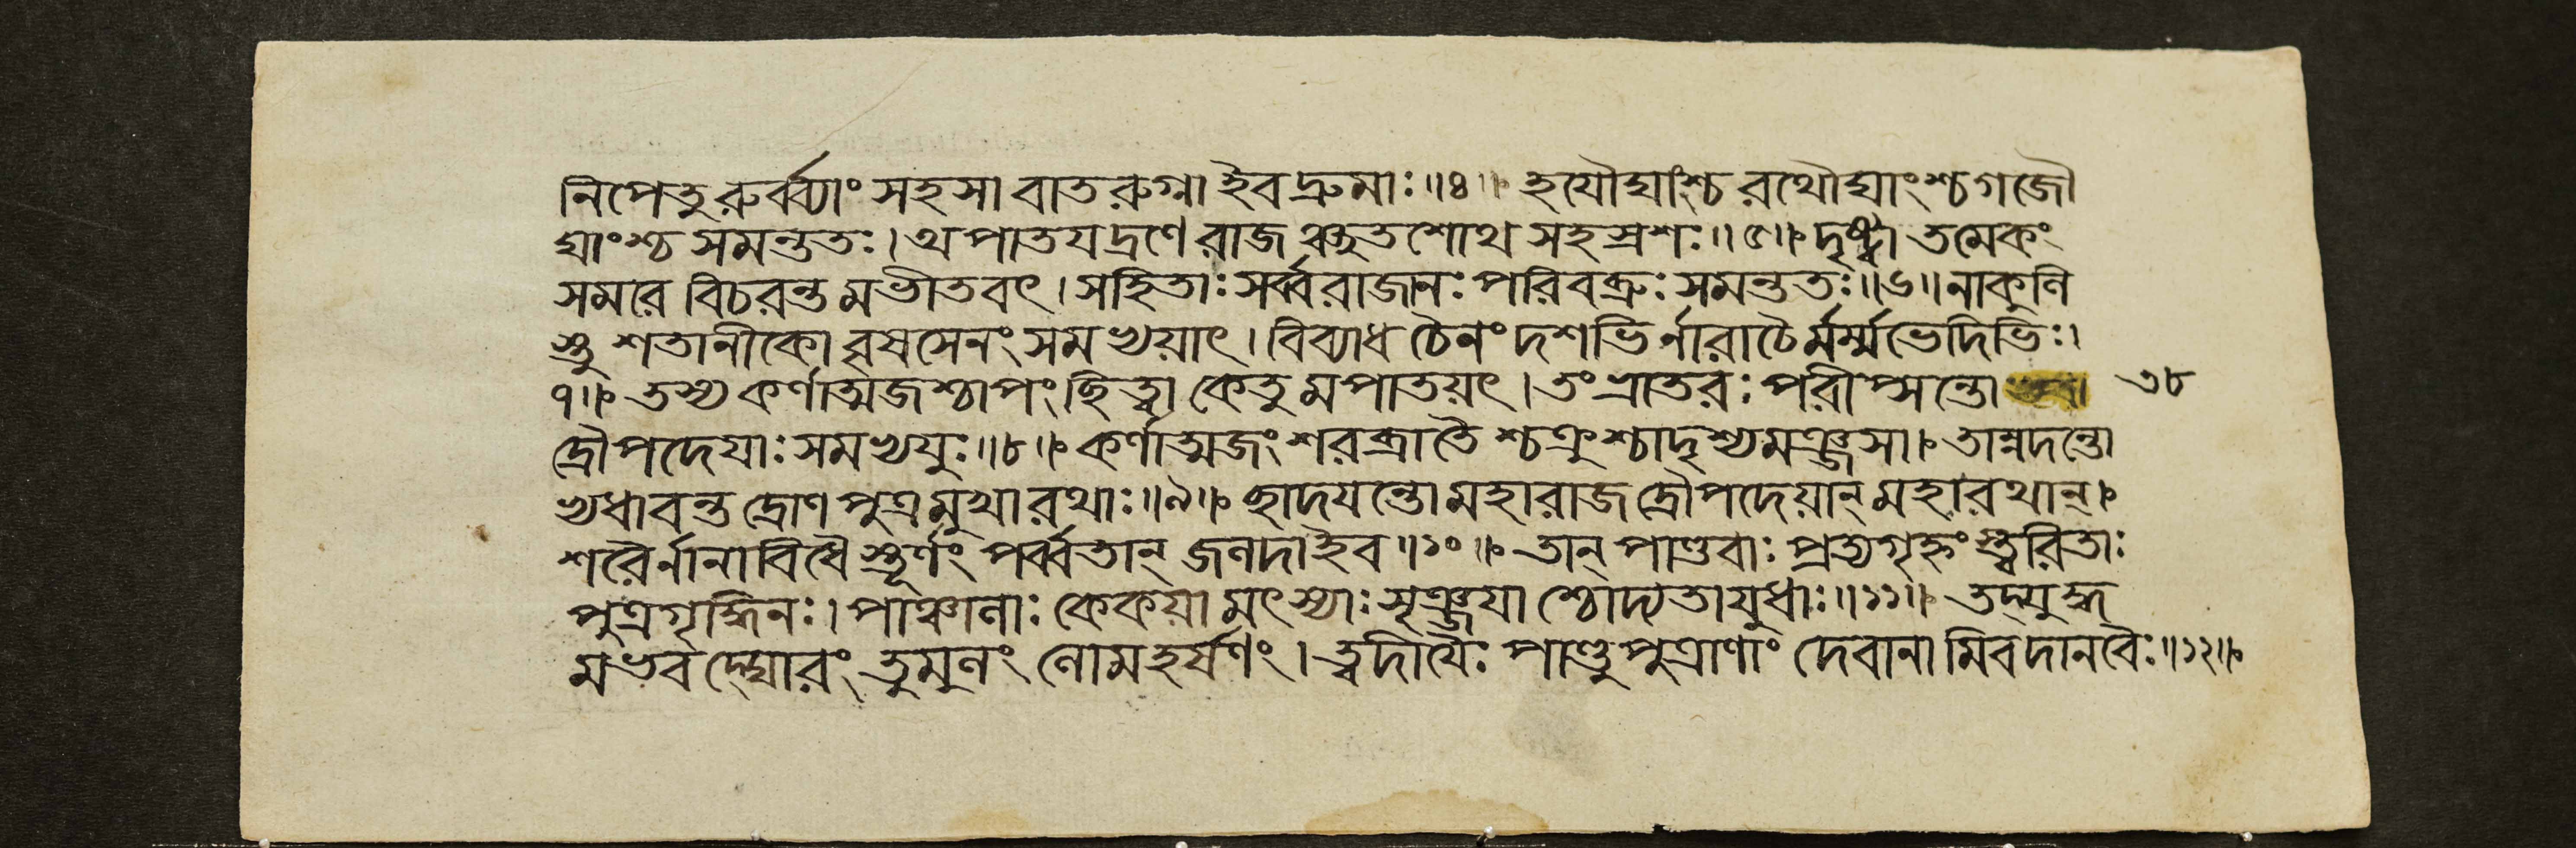 নিপেতুরুর্ব্ব্যাং সহসা বাতরুগ্না ইব দ্রুমাঃ॥৪॥ হযৌঘাংশ্চ রথৌঘাংশ্চ গজৌ
ঘাংশ্চ সমন্ততঃ। অপাতযদ্রণে রাজঞ্চতশোথ সহস্রশঃ॥৫॥ দৃষ্ট্বা তমেকং
সমরে বিচরন্তমভীতবৎ। সহিতাঃ সর্ব্বরাজানঃ পরিবব্রুঃ সমন্ততঃ॥৬॥ নাকুলি
স্তু শতানীকো বৃষসেনং সমভ্যয়াৎ। বিব্যাধ চৈনং দশভির্নারাচৈর্মর্ম্মভেদিভিঃ।
৭॥ তস্য কর্ণাত্মজশ্চাপং ছিত্ত্বা কেতুমপাতয়ৎ। তং ভ্রাতরঃ পরীপ্সন্তো ৩৮
দ্রৌপদেযাঃ সমভ্যযুঃ॥৮॥ কর্ণাত্মজং শরব্রাতৈশ্চক্রুশ্চাদৃশ্যমঞ্জসা। তান্নদন্তো
ভ্যধাবন্ত দ্রোণপুত্রমুখা রথাঃ॥৯॥ ছাদযন্তো মহারাজ দ্রৌপদেয়ান্ মহারথান্।
শরৈর্নানাবিধৈস্তূর্ণং পর্ব্বতান্ জলদা ইব॥১০॥ তান্ পাণ্ডবাঃ প্রত্যগৃহ্ণংস্ত্বরিতাঃ
পুত্রগৃদ্ধিনঃ। পাঞ্চালাঃ কেকয়া মৎস্যাঃ সৃঞ্জযাশ্চোদ্যতাযুধাঃ॥১১॥ তদ্যুদ্ধ
মভবদ্ঘোরং তুমুলং লোমহর্ষণং। ত্বদীযৈঃ পাণ্ডুপুত্রাণাং দেবানামিব দানবৈঃ॥১২॥